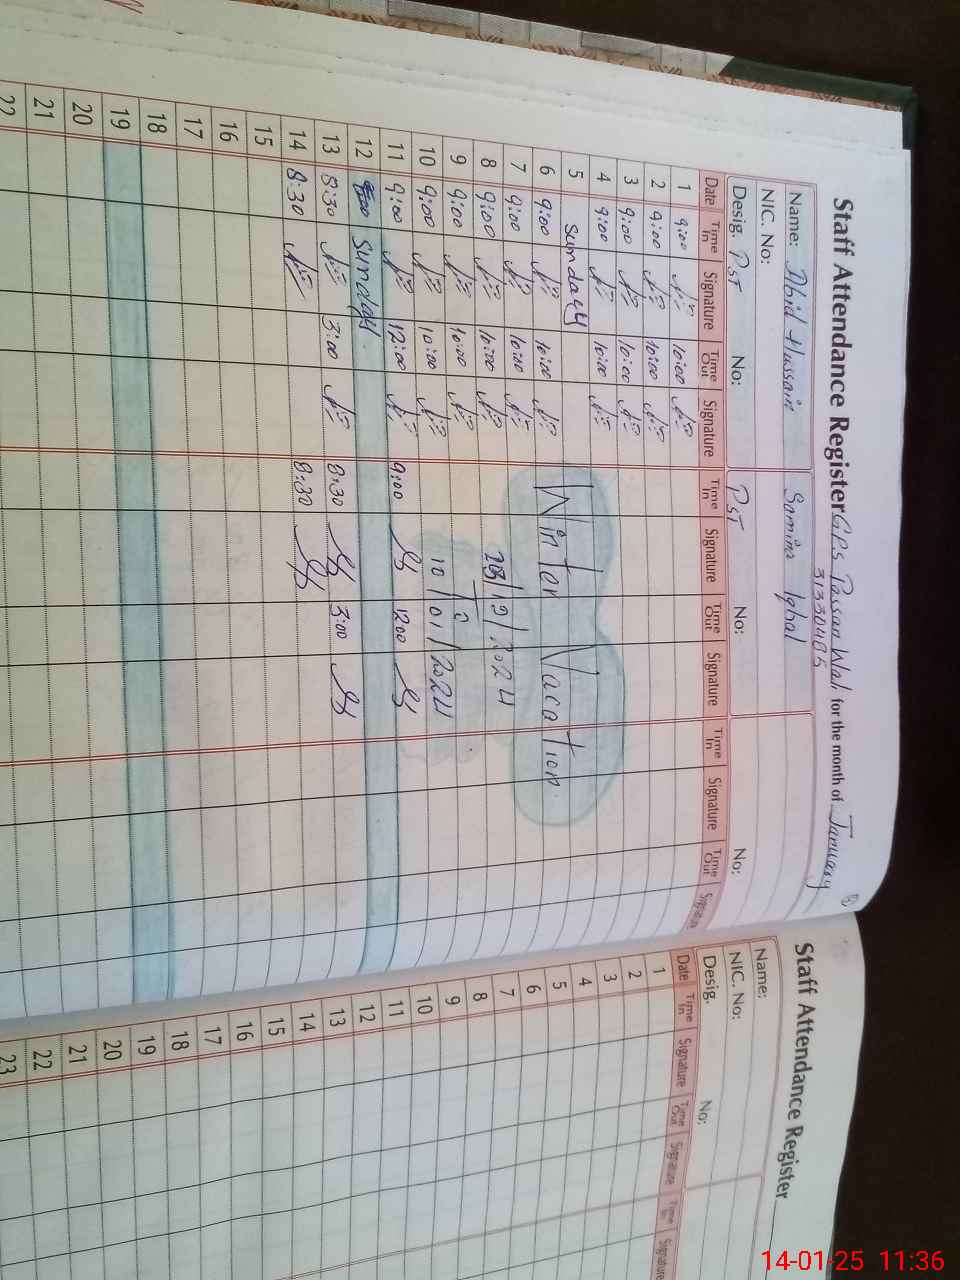 Staff Attendance Register GPS Passan Wal for the month of January
31330405
Name: Abid Hussain Samina Iqbal
NIC. No:
Desig. PST No: PST No: No:
Date Time In Signature Time Out Signature Time In Signature Time Out Signature Time In Signature Time Out Signature
1 9:00 10:00
2 9:00 10:00
3 9:00 10:00
4 9:00 10:00
5 Sunday
6 9:00 10:00 Winter Vacation
7 9:00 10:00
8 9:00 10:00 /2024
9 9:00 10:00 To
10 9:00 10:00 10/01/2024
11 9:00 12:00 9:00 1200
12 Sunday
13 8:30 3:00 8:30 3:00
14 8:30 8:30
15
16
17
18
19
20
21
22
Staff Attendance Register
Name:
NIC. No:
Desig. No:
Date Time In Signature Time Out Signature Time In Signature
1
2
3
4
5
6
7
8
9
10
11
12
13
14
15
16
17
18
19
20
21
22
23
14-01-25 11:36